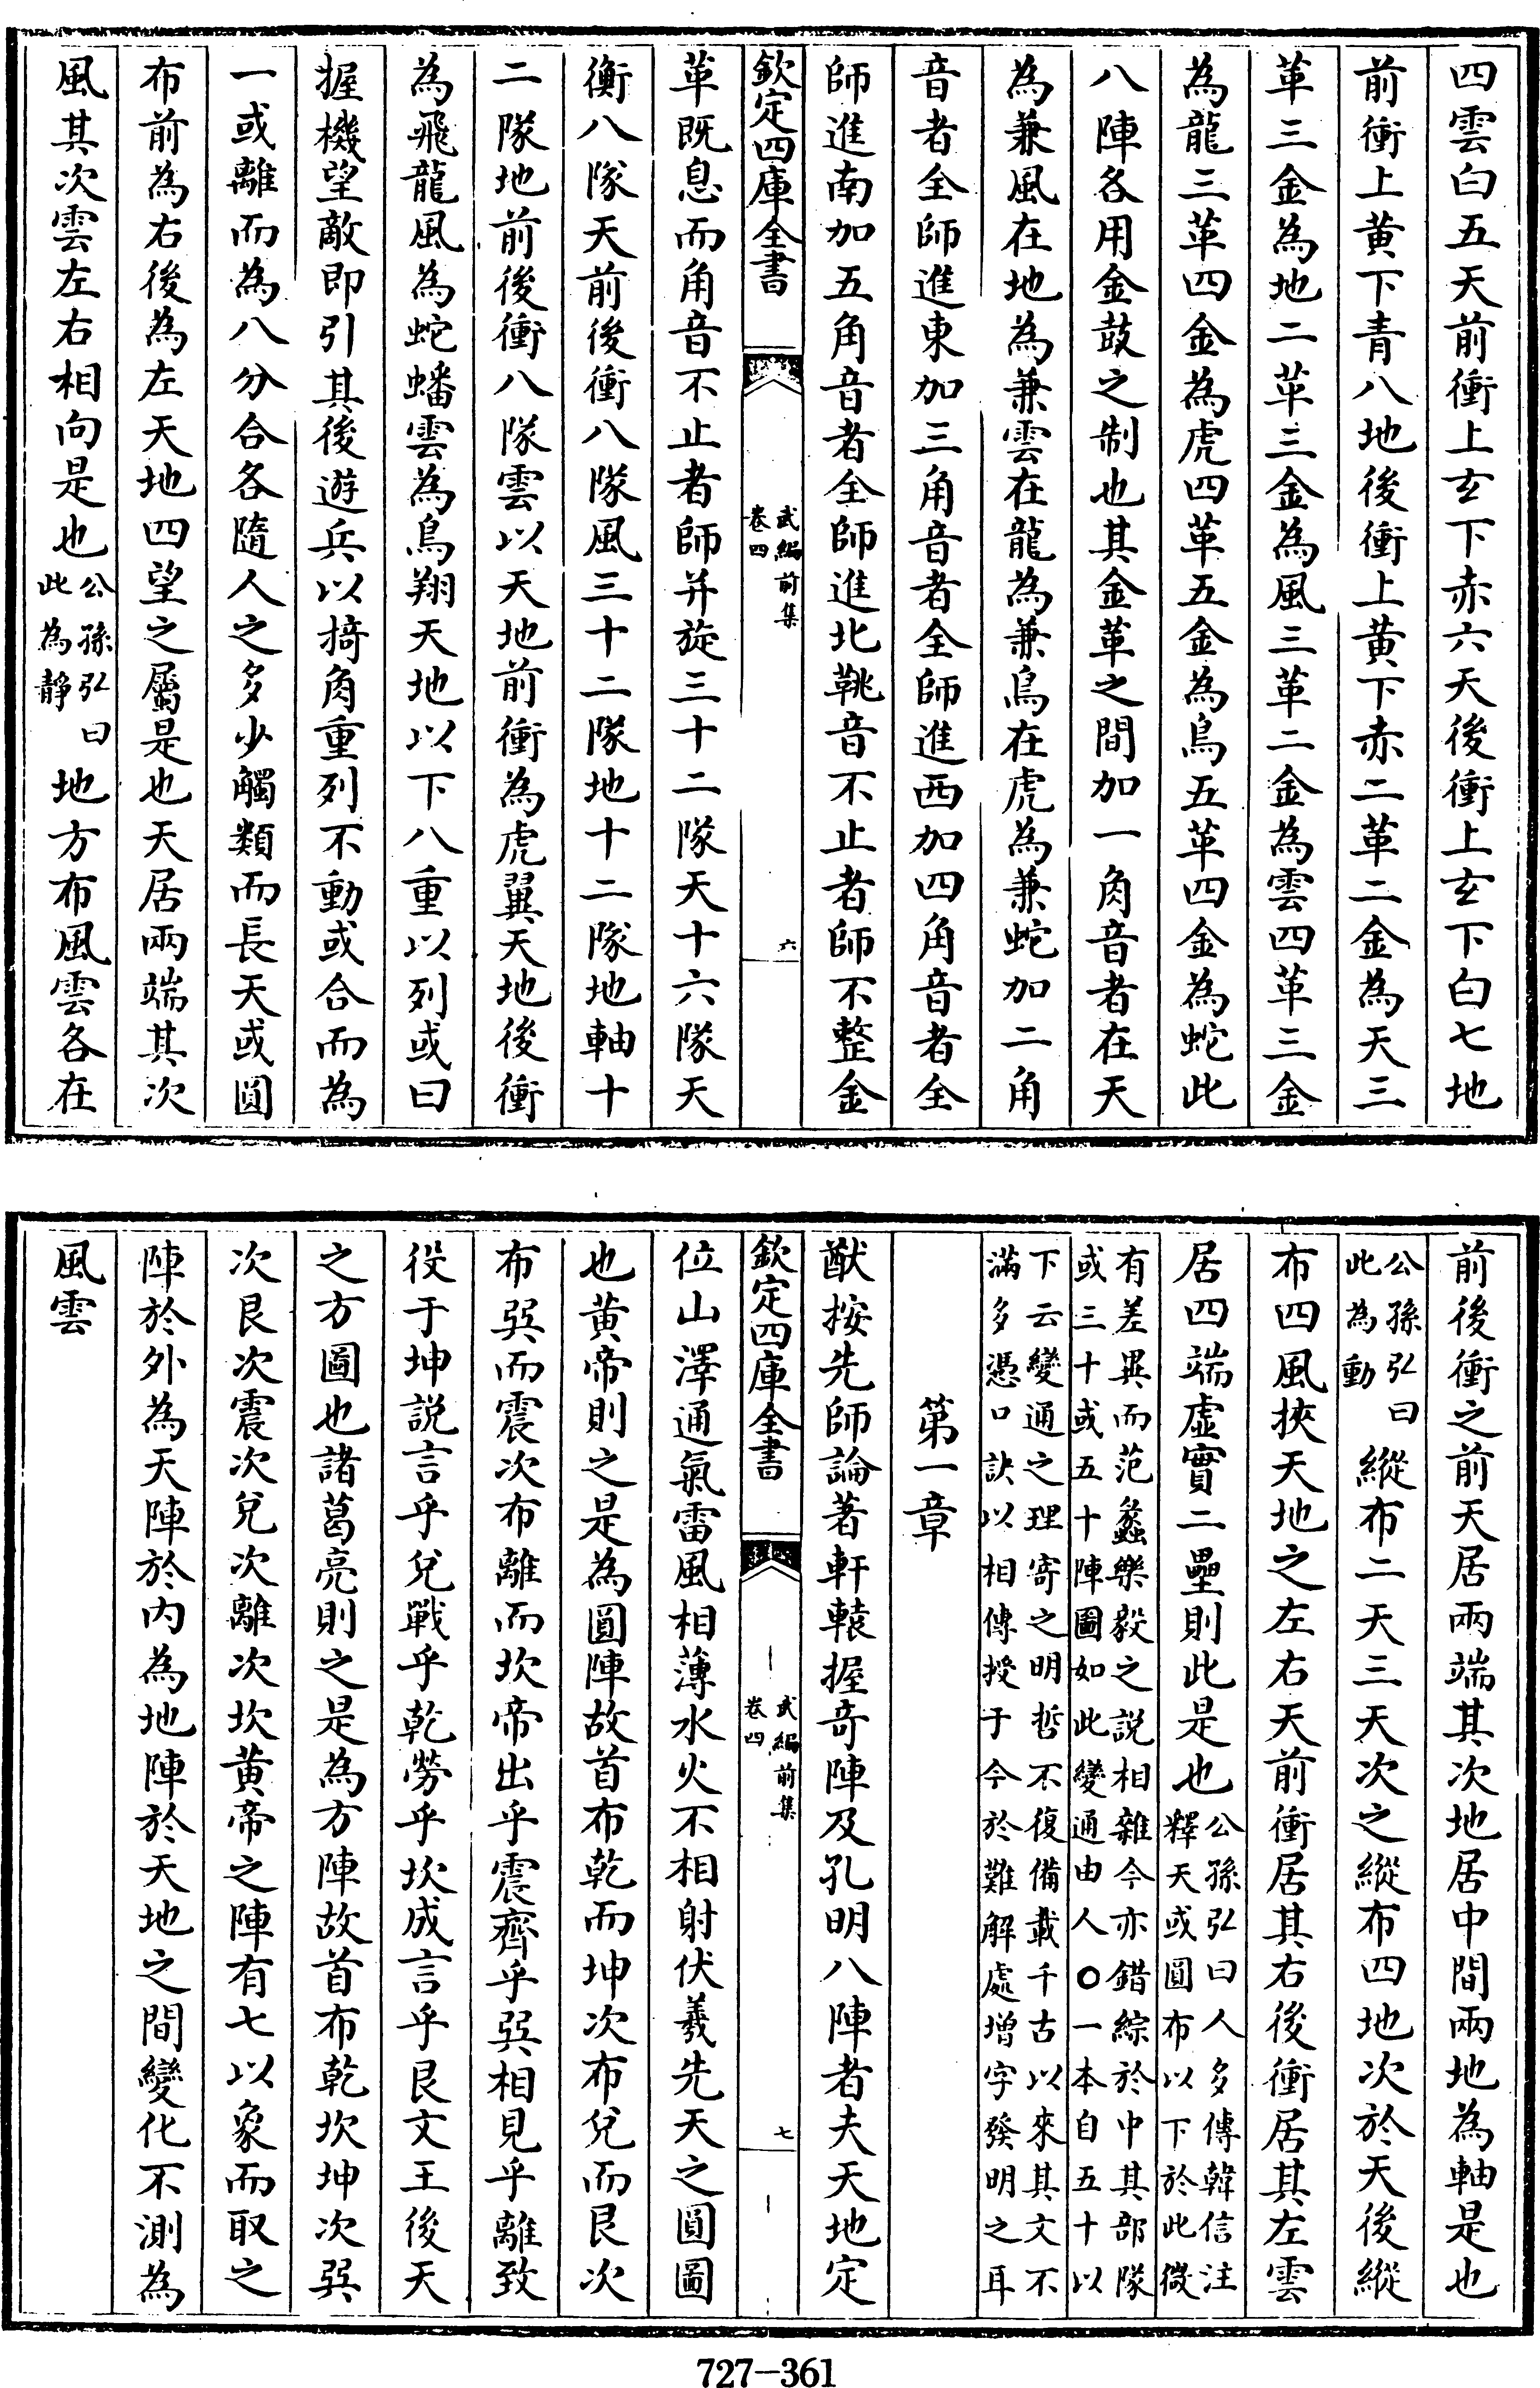 四雲白五天前衝上玄下赤六天後衝上玄下白七地
前衝上黄下青八地後衝上黄下赤二革二金為天三
革三金為地二革三金為風三革二金為雲四革三金
為龍三革四金為虎四革五金為鳥五革四金為蛇此
八陣各用金鼓之制也其金革之間加一角音者在天
為兼風在地為兼雲在龍為兼鳥在虎為兼蛇加二角
音者全師進東加三角音者全師進西加四角音者全
師進南加五角音者全師進北鞉音不止者師不整金
欽定四庫全書
武編前集
卷四
六
革既息而角音不止者師并旋三十二隊天十六隊天
衡八隊天前後衝八隊風三十二隊地十二隊地軸十
二隊地前後衝八隊雲以天地前衝為虎翼天地後衝
為飛龍風為蛇蟠雲為鳥翔天地以下八重以列或曰
握機望敵即引其後遊兵以掎角重列不動或合而為
一或離而為八分合各隨人之多少觸類而長天或圓
布前為右後為左天地四望之屬是也天居兩端其次
風其次雲左右相向是也公孫弘曰
此為靜
地方布風雲各在
前後衝之前天居兩端其次地居中間兩地為軸是也
公孫弘曰
此為動
縱布二天三天次之縱布四地次於天後縱
布四風挾天地之左右天前衝居其右後衝居其左雲
居四端虚實二壘則此是也公孫弘曰人多傳韓信注
釋天或圓布以下於此微
有差異而范蠡樂毅之說相雜今亦錯綜於中其部隊
或三十或五十陣圖如此變通由人〇一本自五十以
下云變通之理寄之明哲不復備載千古以來其文不
滿多憑口訣以相傳授于今於難解處增字發明之耳
第一章
猷按先師論著軒轅握奇陣及孔明八陣者夫天地定
欽定四庫全書
武編前集
卷四
七
位山澤通氣雷風相薄水火不相射伏羲先天之圓圖
也黄帝則之是為圓陣故首布乾而坤次布兌而艮次
布巽而震次布離而坎帝出乎震齊乎巽相見乎離致
役于坤説言乎兌戰乎乾勞乎坎成言乎艮文王後天
之方圖也諸葛亮則之是為方陣故首布乾坎坤次巽
次艮次震次兌次離次坎黄帝之陣有七以象而取之
陣於外為天陣於内為地陣於天地之間變化不測為
風雲
727-361